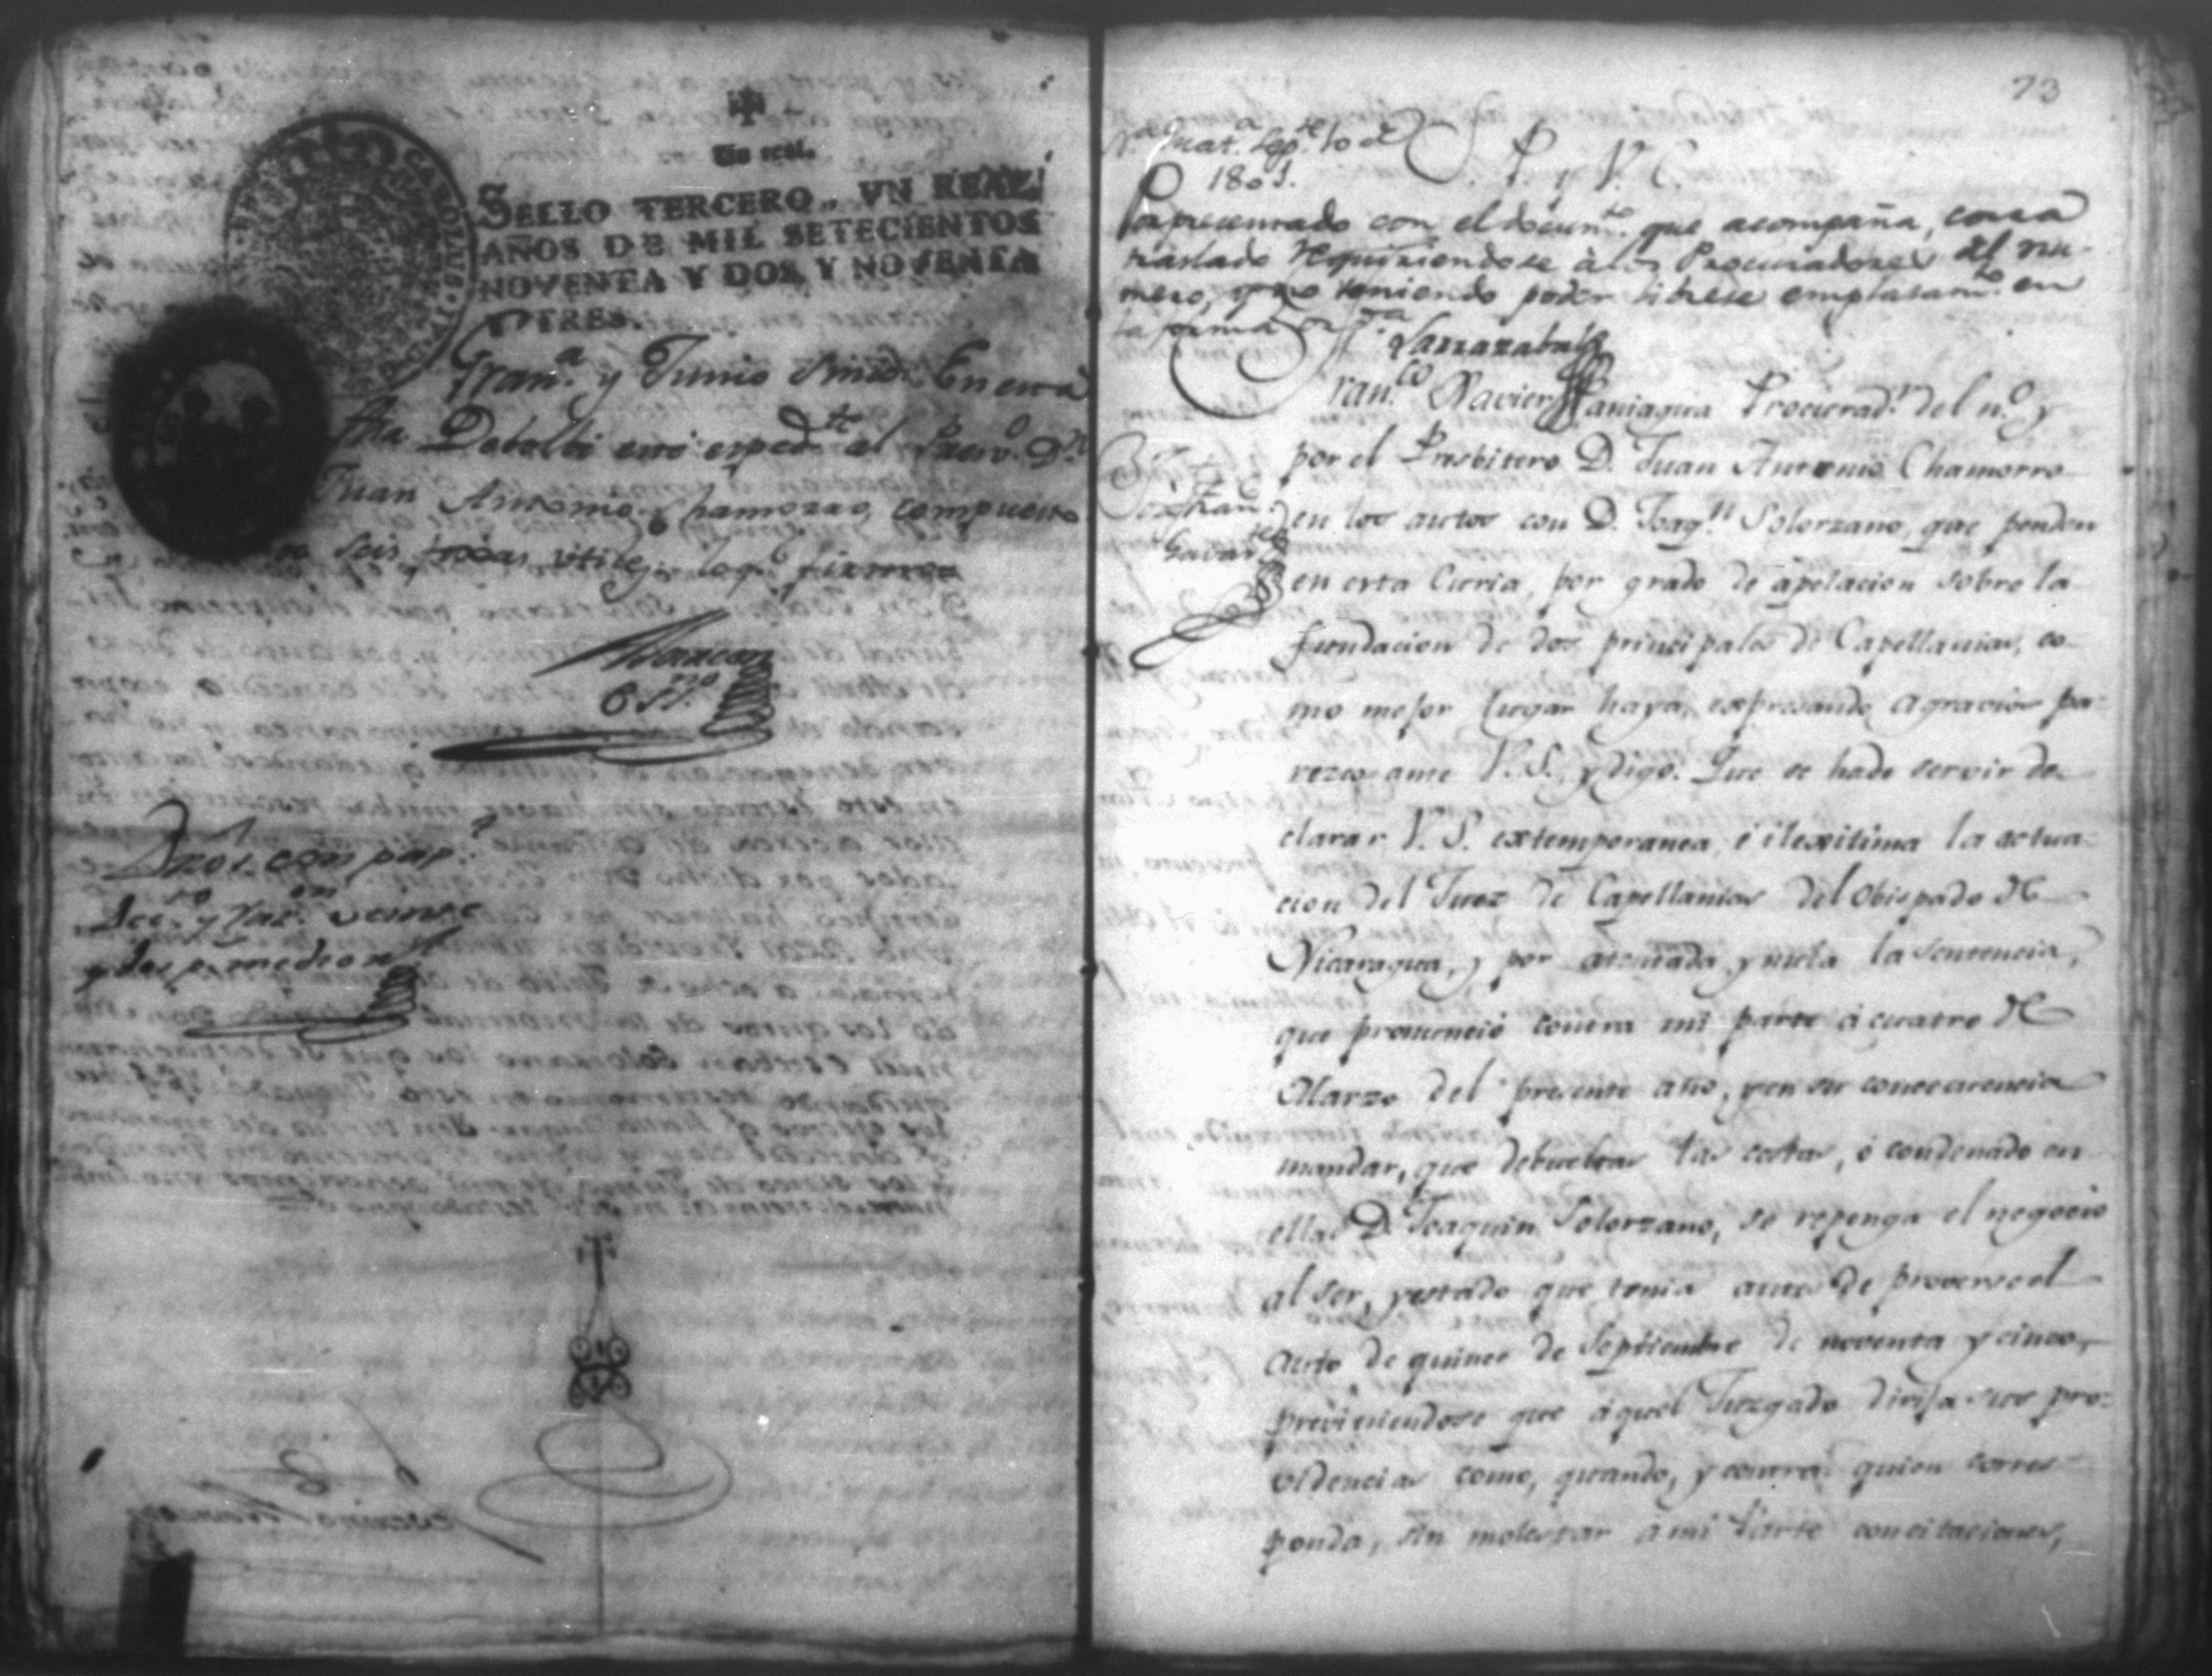 Un real.
SELLO TERCERO, VN REAL,
AÑOS DE MIL SETECIENTOS
NOVENTA Y DOS, Y NOVENTA
Y TRES.
CAROLUS
Gran.ª y Junio En esta
fha Debolbi este exped.te al Presv.o D.n
Juan Antonio Chamorro, compuesto
de seis foxas utiles lo q.e firmo
Dros. con pap.l
y dos p.s medio r.l
73
N.a Guat.a Sep.te 10 de
1801.
S. P. y V. G.
Por presentado con el docum.to que acompaña, corra
traslado requiriendose à los Procuradores del nu-
mero, y no teniendo poder librese emplasam.to en
la forma ord.a
Larrazabal
Fran.co Xavier Paniagua Procurad.r del n.o y
por el Presbitero D. Juan Antonio Chamorro
en los autos con D. Joaq.n Solorzano, que penden
en esta Curia, por grado de apelacion sobre la
fundacion de dos principales de Capellanias, co-
mo mejor lugar haya, expresando agravios pa-
rezco ante V. S. y digo: Que se ha de servir de-
clarar V. S. extemporanea, é ilexitima la actua-
cion del Juez de Capellanias del Obispado de
Nicaragua, y por atentada y nula la sentencia,
que pronunció contra mi parte á cuatro de
Marzo del presente año, y en su consecuencia
mandar, que debueltas las costas, ó condenado en
ellas D. Joaquin Solorzano, se reponga el negocio
al ser, y estado que tenia antes de proverse el
auto de quince de Septiembre de noventa y cinco,
previniendose que aquel Juzgado dirija sus pro-
videncias como, quando, y contra quien corres-
ponda, sin molestar á mi Parte con citaciones,